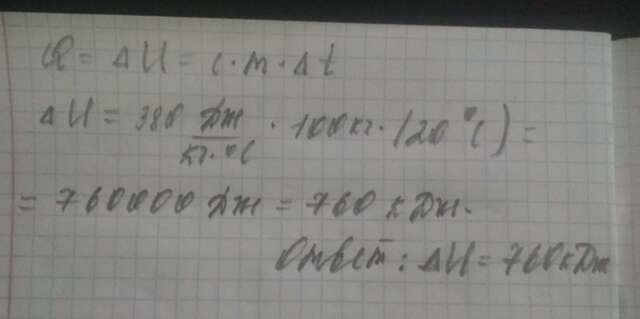 Q = ΔU = c·m·Δt
ΔU = 380 Дж/кг·°C · 100кг·(20°C) =
= 760000 Дж = 760 кДж.
Ответ: ΔU = 760кДж